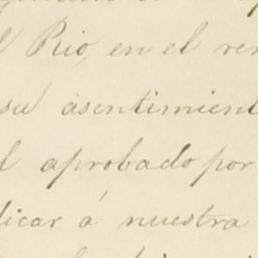 l Rio, en el ren
su asentimient
l aprobado por
licar á nuestra